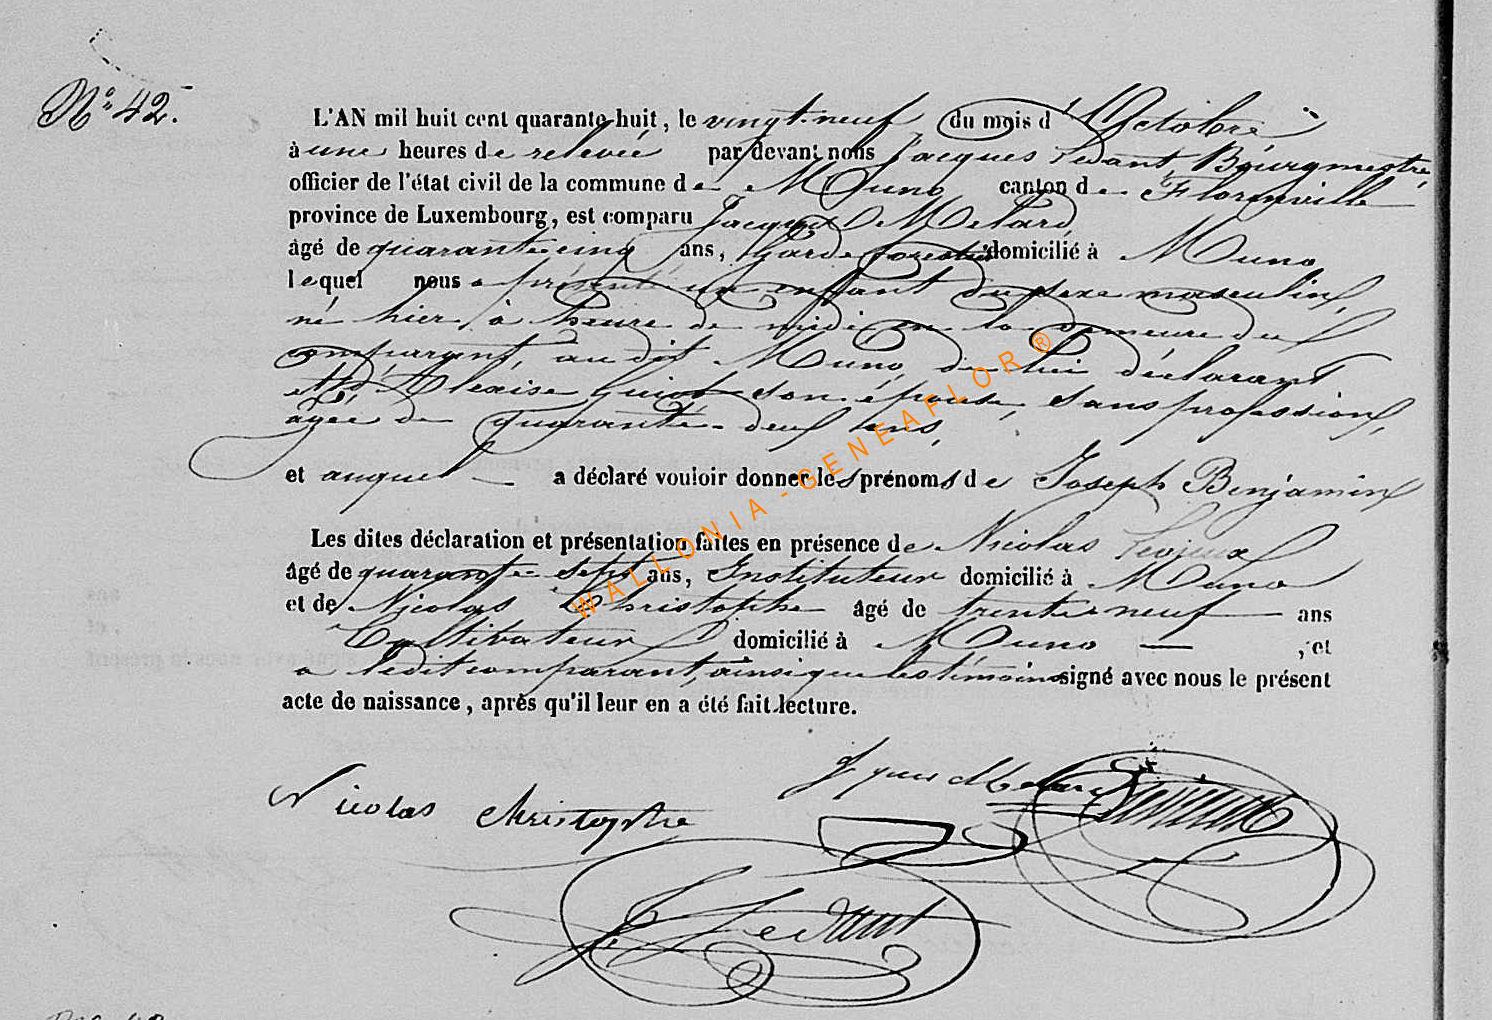 N° 42.
L'AN mil huit cent quarante-huit, le vingt-neuf du mois d'Octobre
à une heures de relevée par devant nous Jacques Ledant, Bourgmestre,
officier de l'état civil de la commune de Muno canton de Florenville
province de Luxembourg, est comparu Jacques Melard
âgé de quarante cinq ans, Garde forestier domicilié à Muno
lequel nous a présenté un enfant du sexe masculin,
né hier à heure de midi en la demeure du
comparant, au dit Muno, de lui déclarant
et d'Alexise Guiot son épouse, sans profession,
agée de quarante-deux ans,
et auquel a déclaré vouloir donner les prénoms de Joseph Benjamin
Les dites déclaration et présentation faites en présence de Nicolas
âgé de quarante-sept ans, Instituteur domicilié à Muno
et de Nicolas Christophe âgé de trente-neuf ans
Cultivateur domicilié à Muno , et
a ledit comparant, ainsi que les témoins signé avec nous le présent
acte de naissance, après qu'il leur en a été fait lecture.
Nicolas Christophe
J Ledant
WALLONIA - GENEAFLOR ®